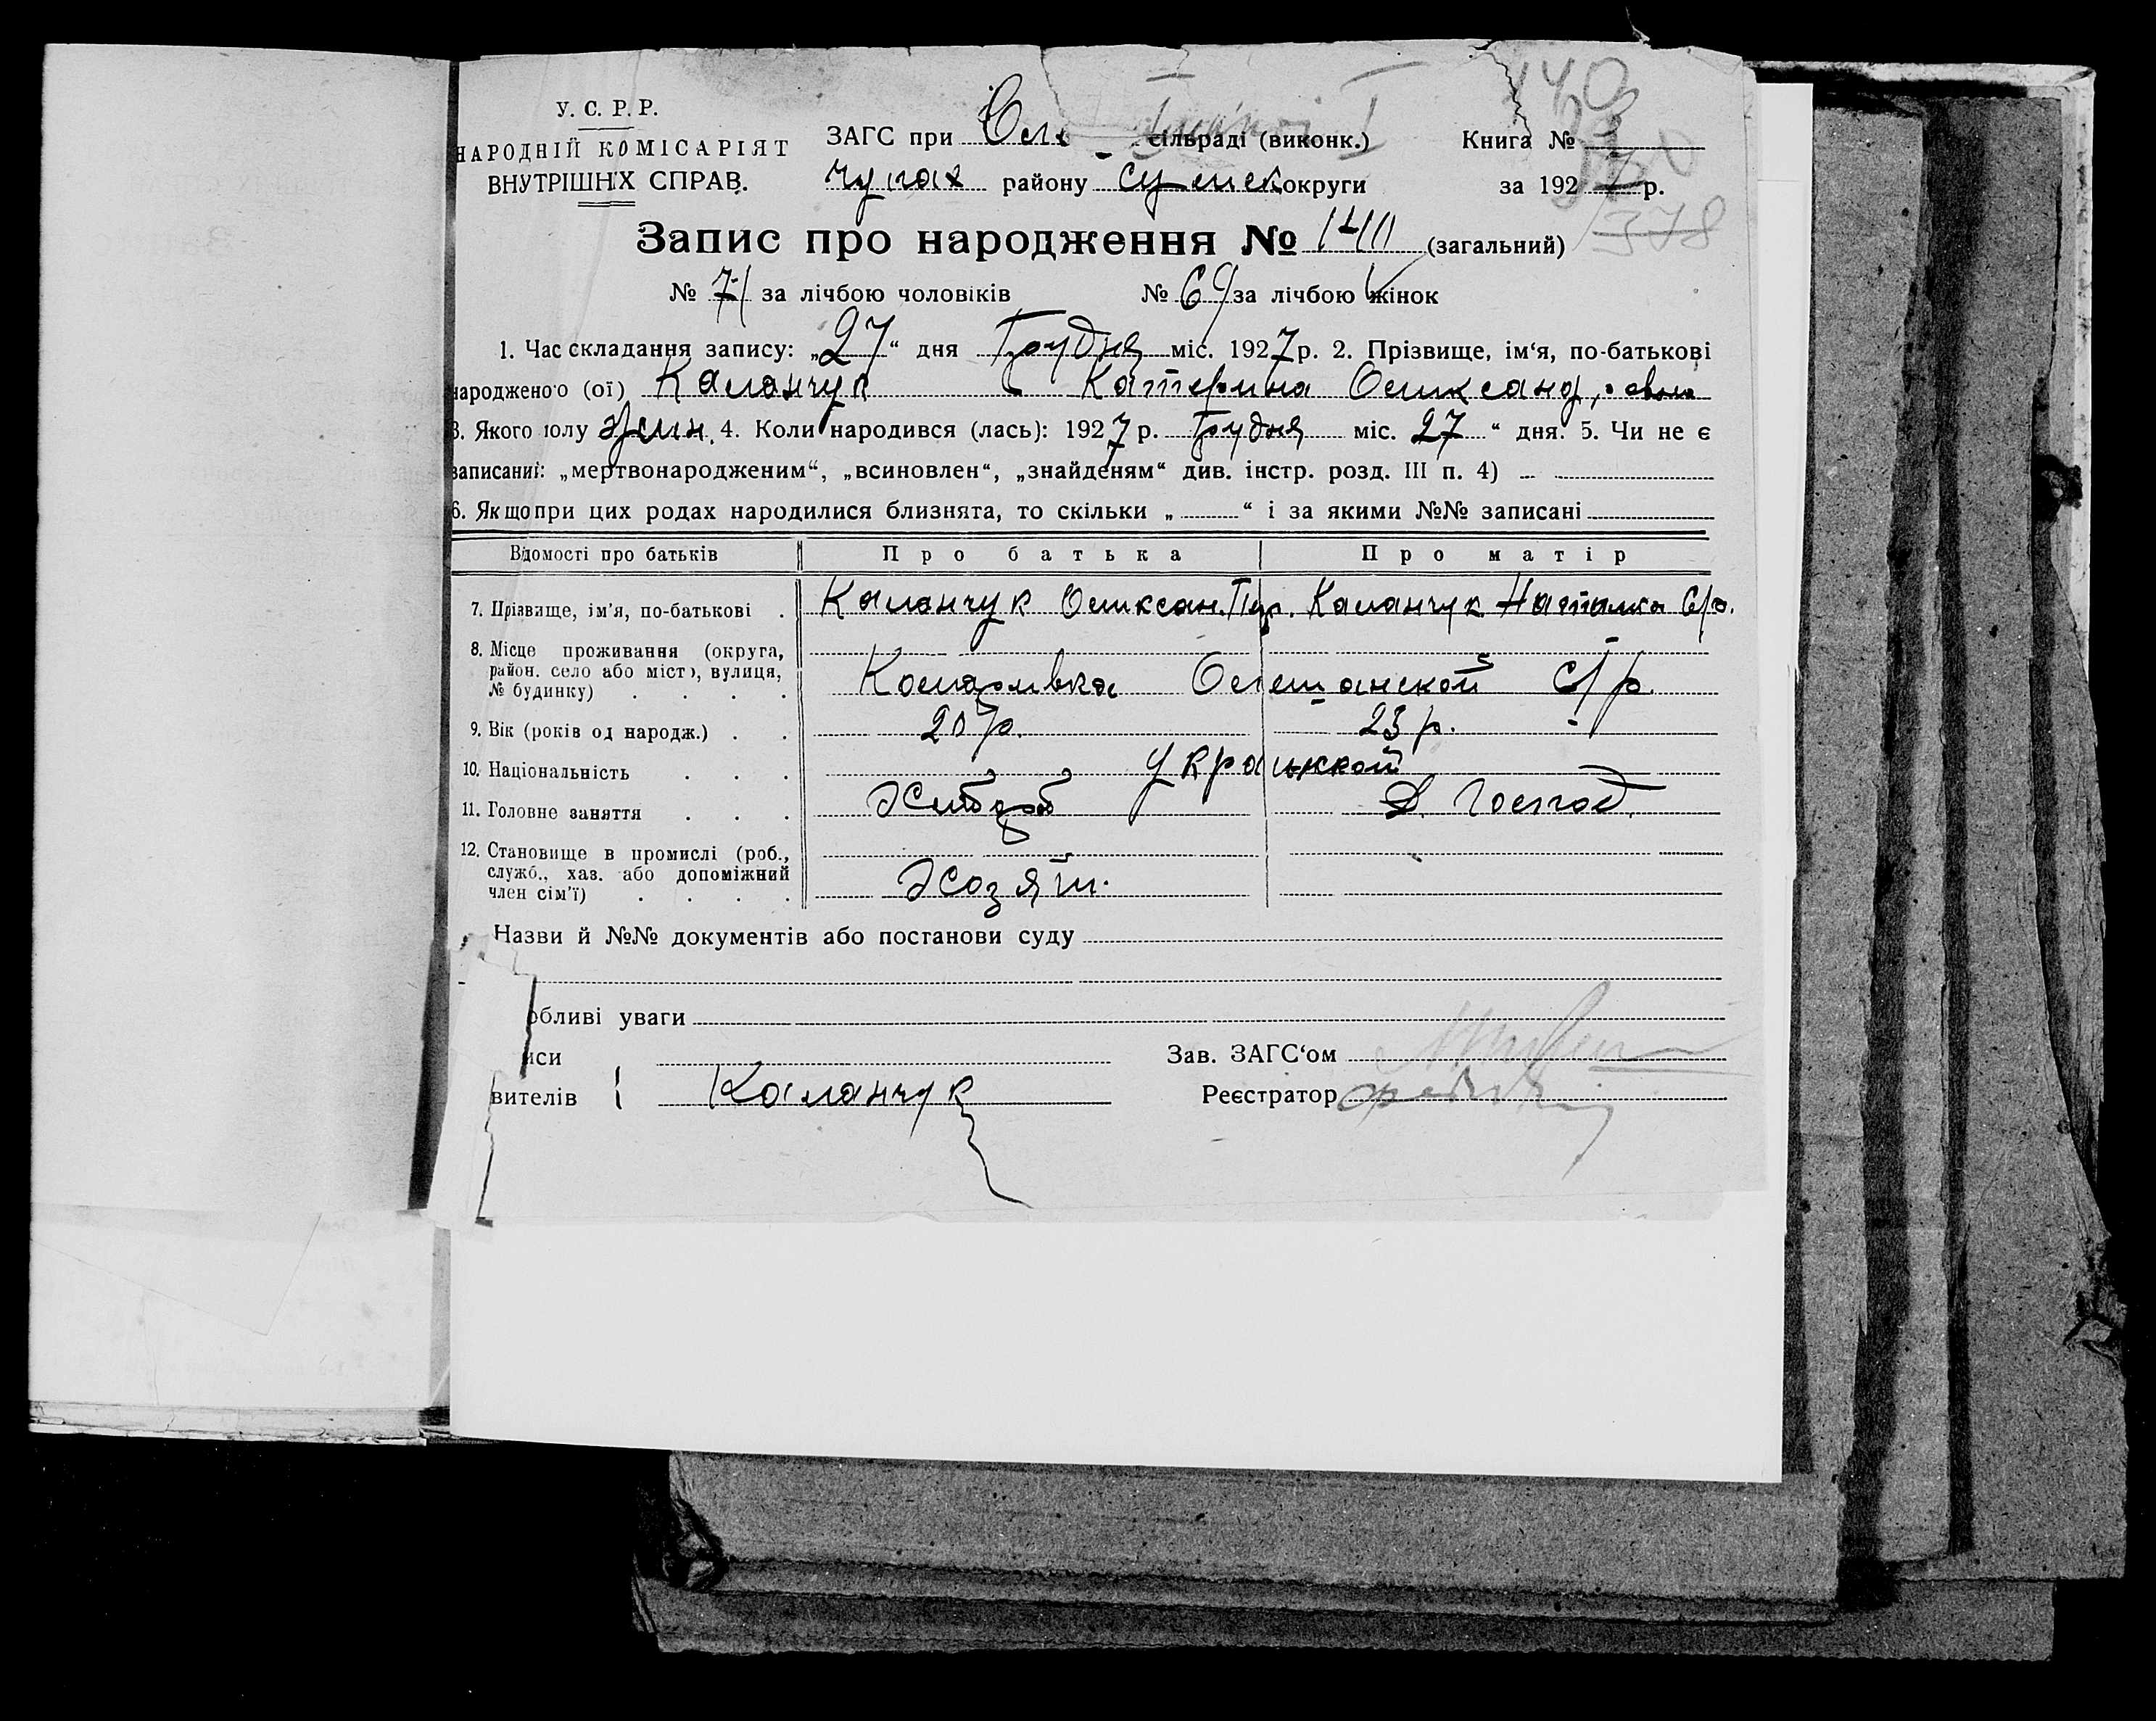 У. С. Р. Р.
НАРОДНІЙ КОМІСАРІЯТ
ВНУТРІШНІХ СПРАВ.
ЗАГС при сільраді (виконк.)
району округи
Книга №
за 1927 р.
Запис про народження № 140 (загальний)
378
№ 71 за лічбою чоловіків № 69 за лічбою жінок
1. Час складання запису: „27“ дня Грудня міс. 1927 р. 2. Прізвище, ім‘я, по-батькові
народженого (ої) Каланчук Катерина Олександ
3. Якого полу жин. 4. Коли народився (лась): 1927 р. Грудня міс. 27 “ дня. 5. Чи не є
записаний: „мертвонародженим“, „всиновлен“, „знайденям“ див. інстр. розд. III п. 4) –
6. Якщо при цих родах народилися близнята, то скільки „ “ і за якими №№ записані
Відомості про батьків Про батька Про матір
7. Прізвище, ім’я, по-батькові . Каланчук Олександ. Каланчук Наталка
8. Місце проживання (округа,
район. село або місто), вулиця,
№ будинку) . . . . с/р.
9. Вік (років од народж.) . . 20 р. 23 р.
10. Національність . . . Українской
11. Головне заняття . . . Хлібороб Д. Господ.
12. Становище в промислі (роб.,
служб., хаз. або допоміжний
член сім’ї) . . . . Хозяїн.
Назви й №№ документів або постанови суду
обливі уваги
иси Зав. ЗАГС‘ом
вителів Каланчук Реєстратор